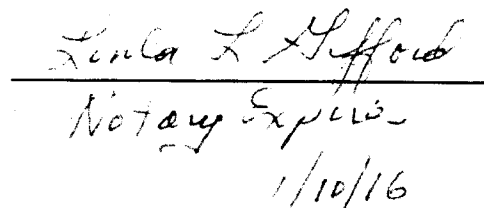 Linda L Gifford
Notary Expires
1/10/16